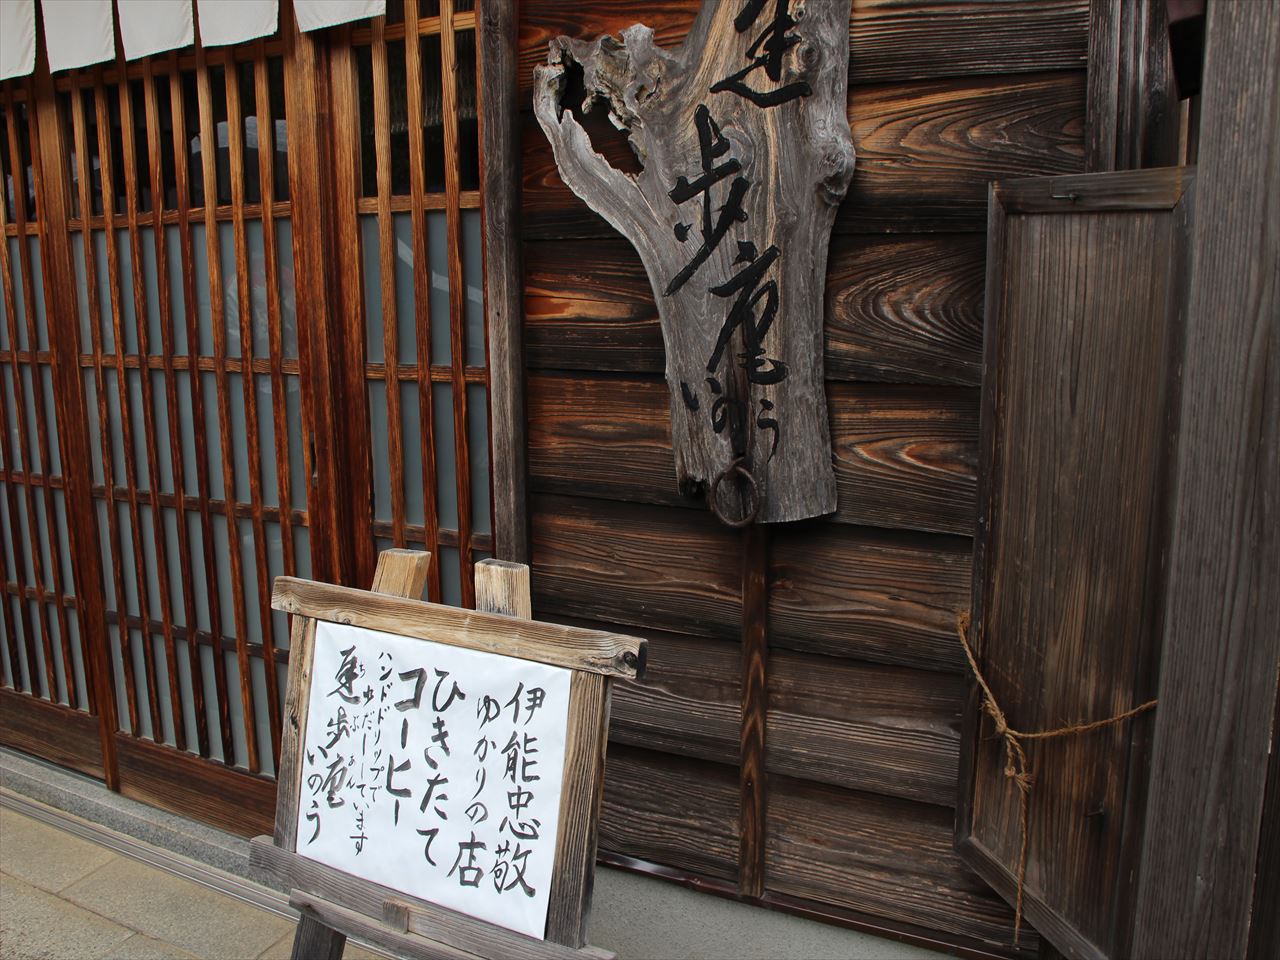 遅歩庵
いのう
伊能忠敬
ゆかりの店
ひきたて
コーヒー
ハンドドリップで
だしています
ちぶあん
遅歩庵
いのう